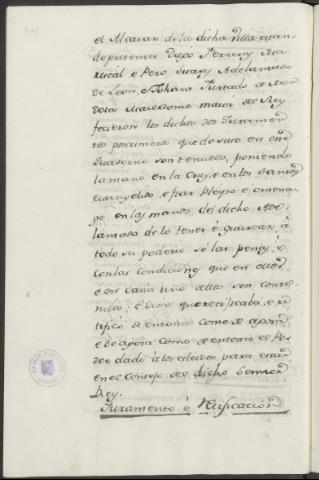 el Alcazar de la dicha Villa estan-
do presentes Diego Ferrares Ma-
riscal, e Pero Suarez Adelantado
de Leon, e Joham Furtado de Men
doza Mayordomo mayor del Rey
fecieron los dichos dos Juramen-
tos por manera que de suso en este
Quaderno son tenudos, poniendo
la mano en la Cruz, e en los Santos
Euangelios, e par Pleyto e omena-
ge en las manos del dicho Ade-
lantado de lo tener é guardar á
todo su poderio só las penas, é
con las condiciones que en ellos
e en cada uno dellos son conte-
nidos; e dixo que retificaba, é re-
tifico de entonces como de agora
e de agora como de entonces el Po-
der dado á los electos para estar
en el Consejo del dicho Sennor
Rey.
Juramento é retificacion